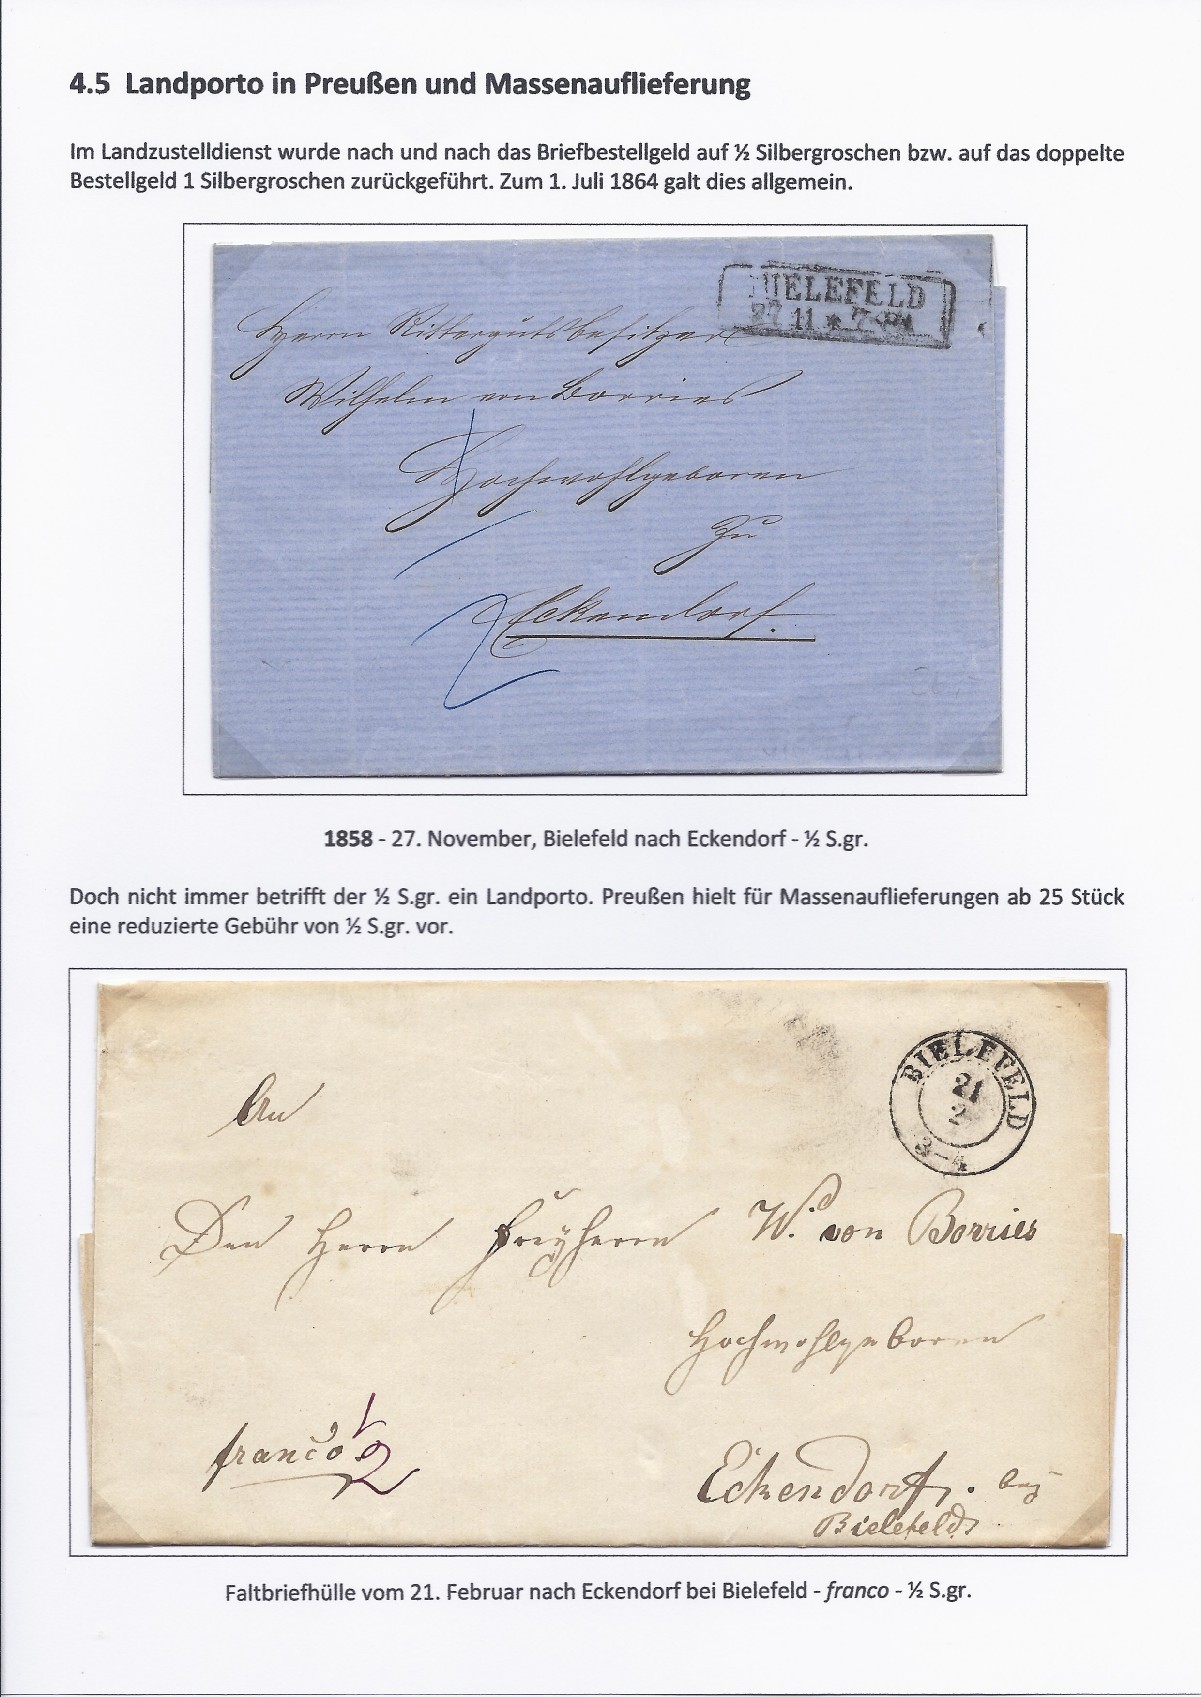 4.5 Landporto in Preußen und Massenauflieferung
Im Landzustelldienst wurde nach und nach das Briefbestellgeld auf ½ Silbergroschen bzw. auf das doppelte
Bestellgeld 1 Silbergroschen zurückgeführt. Zum 1. Juli 1864 galt dies allgemein.
BIELEFELD
27 11 * 7-8
Herrn Rittergutsbesitzer
Wilhelm von Borries
Hochwohlgeboren
zu
Eckendorf.
1/2
1858 - 27. November, Bielefeld nach Eckendorf - ½ S.gr.
Doch nicht immer betrifft der ½ S.gr. ein Landporto. Preußen hielt für Massenauflieferungen ab 25 Stück
eine reduzierte Gebühr von ½ S.gr. vor.
BIELEFELD
21
2
3-4
An
Den Herrn Freyherrn W. von Borries
Hochwohlgeboren
franco 1/2
Eckendorf. bey
Bielefeld
Faltbriefhülle vom 21. Februar nach Eckendorf bei Bielefeld - franco - ½ S.gr.